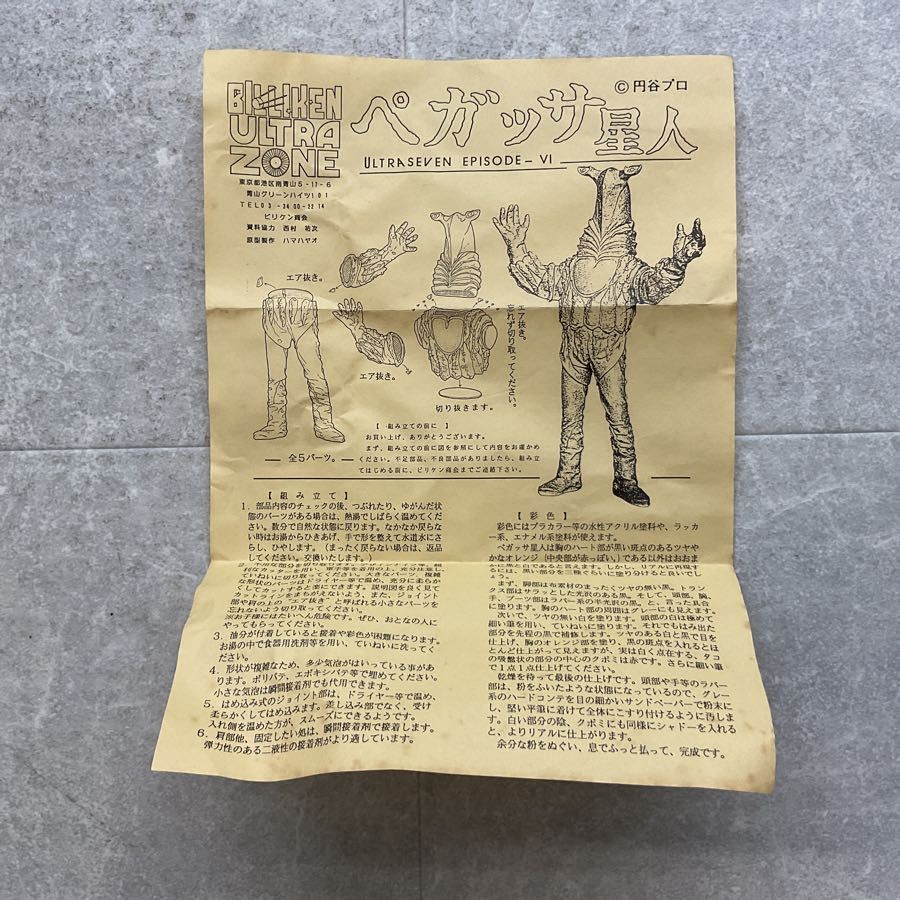 BILLIKEN
ULTRA
ZONE
東京都港区南青山5-17-6
青山グリーンハイツ101
TEL03-3400-2214
ビリケン商会
資料協力 西村 祐次
原型製作 ハマハヤオ
ペガッサ星人
ULTRASEVEN EPISODE-VI
©円谷プロ
エア抜き。
エア抜き。
エア抜き。
忘れず切り取ってください。
切り抜きます。
全5パーツ。
【 組み立ての前に 】
お買い上げ、ありがとうございます。
まず、組み立ての前に図を参照にして内容をお確かめ
ください。不足部品、不良部品がありましたら、組み立
てはじめる前に、ビリケン商会までご連絡下さい。
【組み立て】
1.部品内容のチェックの後、つぶれたり、ゆがんだ状
態のパーツがある場合は、熱湯でしばらく温めてくだ
さい。数分で自然な状態に戻ります。なかなか戻らな
い時はお湯からひきあげ、手で形を整えて水道水にさ
らし、ひやします。(まったく戻らない場合は、返品
してください。交換いたします。)
ていねいに切り取ってください。大きなパーツ、複雑
な形状のパーツはドライヤー等で温め、充分に柔らか
くしてカットすると楽にできます。説明図を良く見て
カットラインをまちがえないよう、また、ジョイント
部や肩の上の“エア抜き”と呼ばれる小さなパーツを
忘れないよう切り取ってください。
※お子様にはたいへん危険です。ぜひ、おとなの人に
やってもらってください。
3.油分が付着していると接着や彩色が困難になります。
お湯の中で食器用洗剤等を用い、ていねいに洗ってく
ださい。
4.形状が複雑なため、多少気泡がはいっている事があ
ります。ポリパテ、エポキシパテ等で埋めてください。
小さな気泡は瞬間接着剤でも代用できます。
5.はめ込み式のジョイント部は、ドライヤー等で温め、
柔らかくしてはめ込みます。差し込み部でなく、受け
入れ側を温めた方が、スムーズにできるようです。
6.肩部他、固定したい処は、瞬間接着剤で接着します。
弾力性のある二液性の接着剤がより適しています。
【 彩色 】
彩色にはプラカラー等の水性アクリル塗料や、ラッカ
ー系、エナメル系塗料が使えます。
ペガッサ星人は胸のハート部が黒い斑点のあるツヤや
かなオレンジ(中央部が赤っぽい。)である以外はおおま
かに黒と白であると言えます。しかし、リアルに再現す
るには、黒い部分を三種ぐらいに塗り分けると良いでし
ょう。
まず、脚部は布素材のまったくツヤの無い黒。トラン
クス部はサラッとした光沢のある黒。そして、頭部、胸、
手、ブーツ部はラバー系の半光沢の黒。と、言った具合
に塗ります。胸のハート部の周囲はグレーにも見えます。
次いで、ツヤの無い白を塗ります。頭部の白は極めて
細い筆を用い、ていねいに塗ります。それでもはみ出た
部分を先程の黒で補修します。ツヤのある白と黒で目を
仕上げ、胸のオレンジ部を塗り、黒の斑点を入れるとほ
とんど仕上がって見えますが、実は白く点在する、タコ
の吸盤状の部分の中心のクボミは赤です。さらに細い筆
で1点1点仕上げてください。
乾燥を待って最後の仕上げです。頭部や手等のラバー
部は、粉をふいたような状態になっているので、グレー
系のハードコンテを目の細かいサンドペーパーで粉末に
し、堅い平筆に着けて全体にこすり付けるように汚しま
す。白い部分の陰、クボミにも同様にシャドーを入れる
と、よりリアルに仕上がります。
余分な粉をぬぐい、息でふっと払って、完成です。